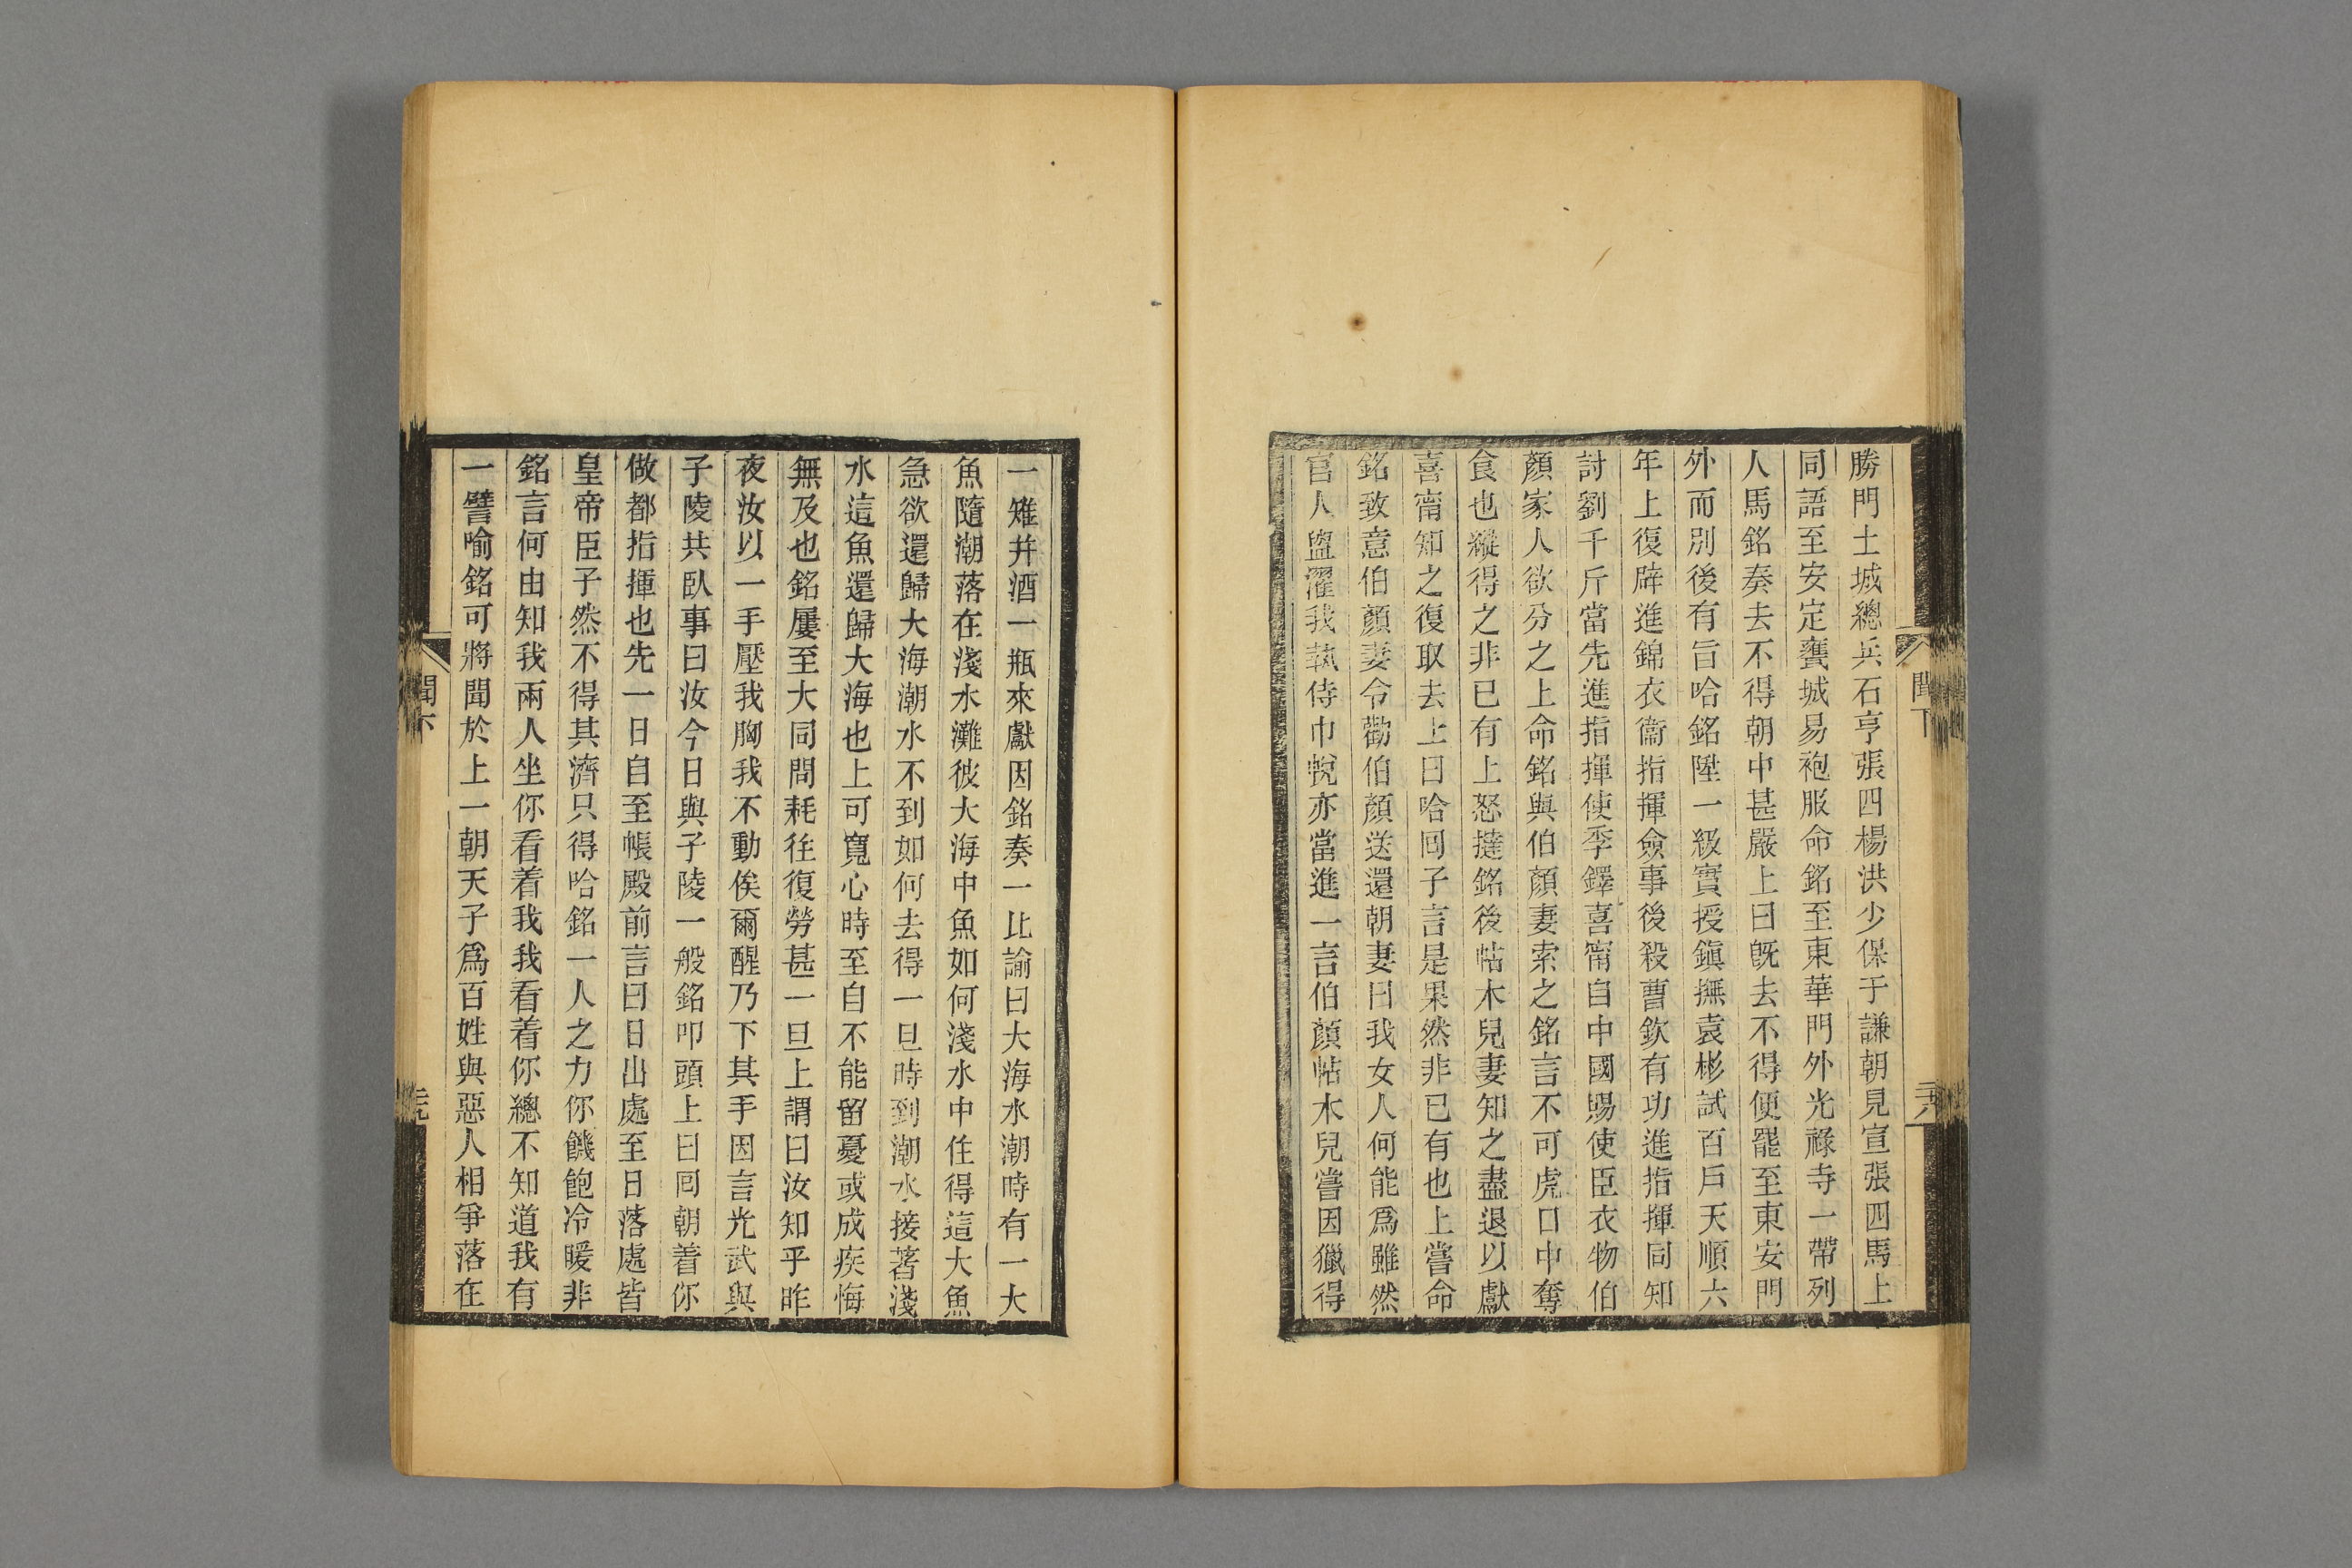 勝門土城總兵石亨張四楊洪少保于謙朝見宣張四馬上
同語至安定甕城易袍服命銘至東華門外光祿寺一帶列
人馬銘奏去不得朝中甚嚴上曰旣去不得便罷至東安門
外而別後有旨哈銘陞一級實授鎭撫袁彬試百戶天順六
年上復辟進錦衣衞指揮僉事後殺曹欽有功進指揮同知
討劉千斤當先進指揮使季鐸喜甯自中國賜使臣衣物伯
顏家人欲分之上命銘與伯顏妻索之銘言不可虎口中奪
食也縱得之非已有上怒撻銘後帖木兒妻知之盡退以獻
喜甯知之復取去上曰哈囘子言是果然非已有也上嘗命
銘致意伯顏妻令勸伯顏送還朝妻曰我女人何能爲雖然
官人盥濯我執侍巾帨亦當進一言伯顏帖木兒嘗因獵得
聞下
一雉并酒一瓶來獻因銘奏一比諭曰大海水潮時有一大
魚隨潮落在淺水灘彼大海中魚如何淺水中住得這大魚
急欲還歸大海潮水不到如何去得一旦時到潮水接著淺
水這魚還歸大海也上可寬心時至自不能留憂或成疾悔
無及也銘屢至大同問耗往復勞甚一旦上謂曰汝知乎昨
夜汝以一手壓我胸我不動俟爾醒乃下其手因言光武與
子陵共臥事曰汝今日與子陵一般銘叩頭上曰囘朝着你
做都指揮也先一日自至帳殿前言曰日出處至日落處皆
皇帝臣子然不得其濟只得哈銘一人之力你饑飽冷暖非
銘言何由知我兩人坐你看着我我看着你總不知道我有
一譬喻銘可將聞於上一朝天子爲百姓與惡人相爭落在